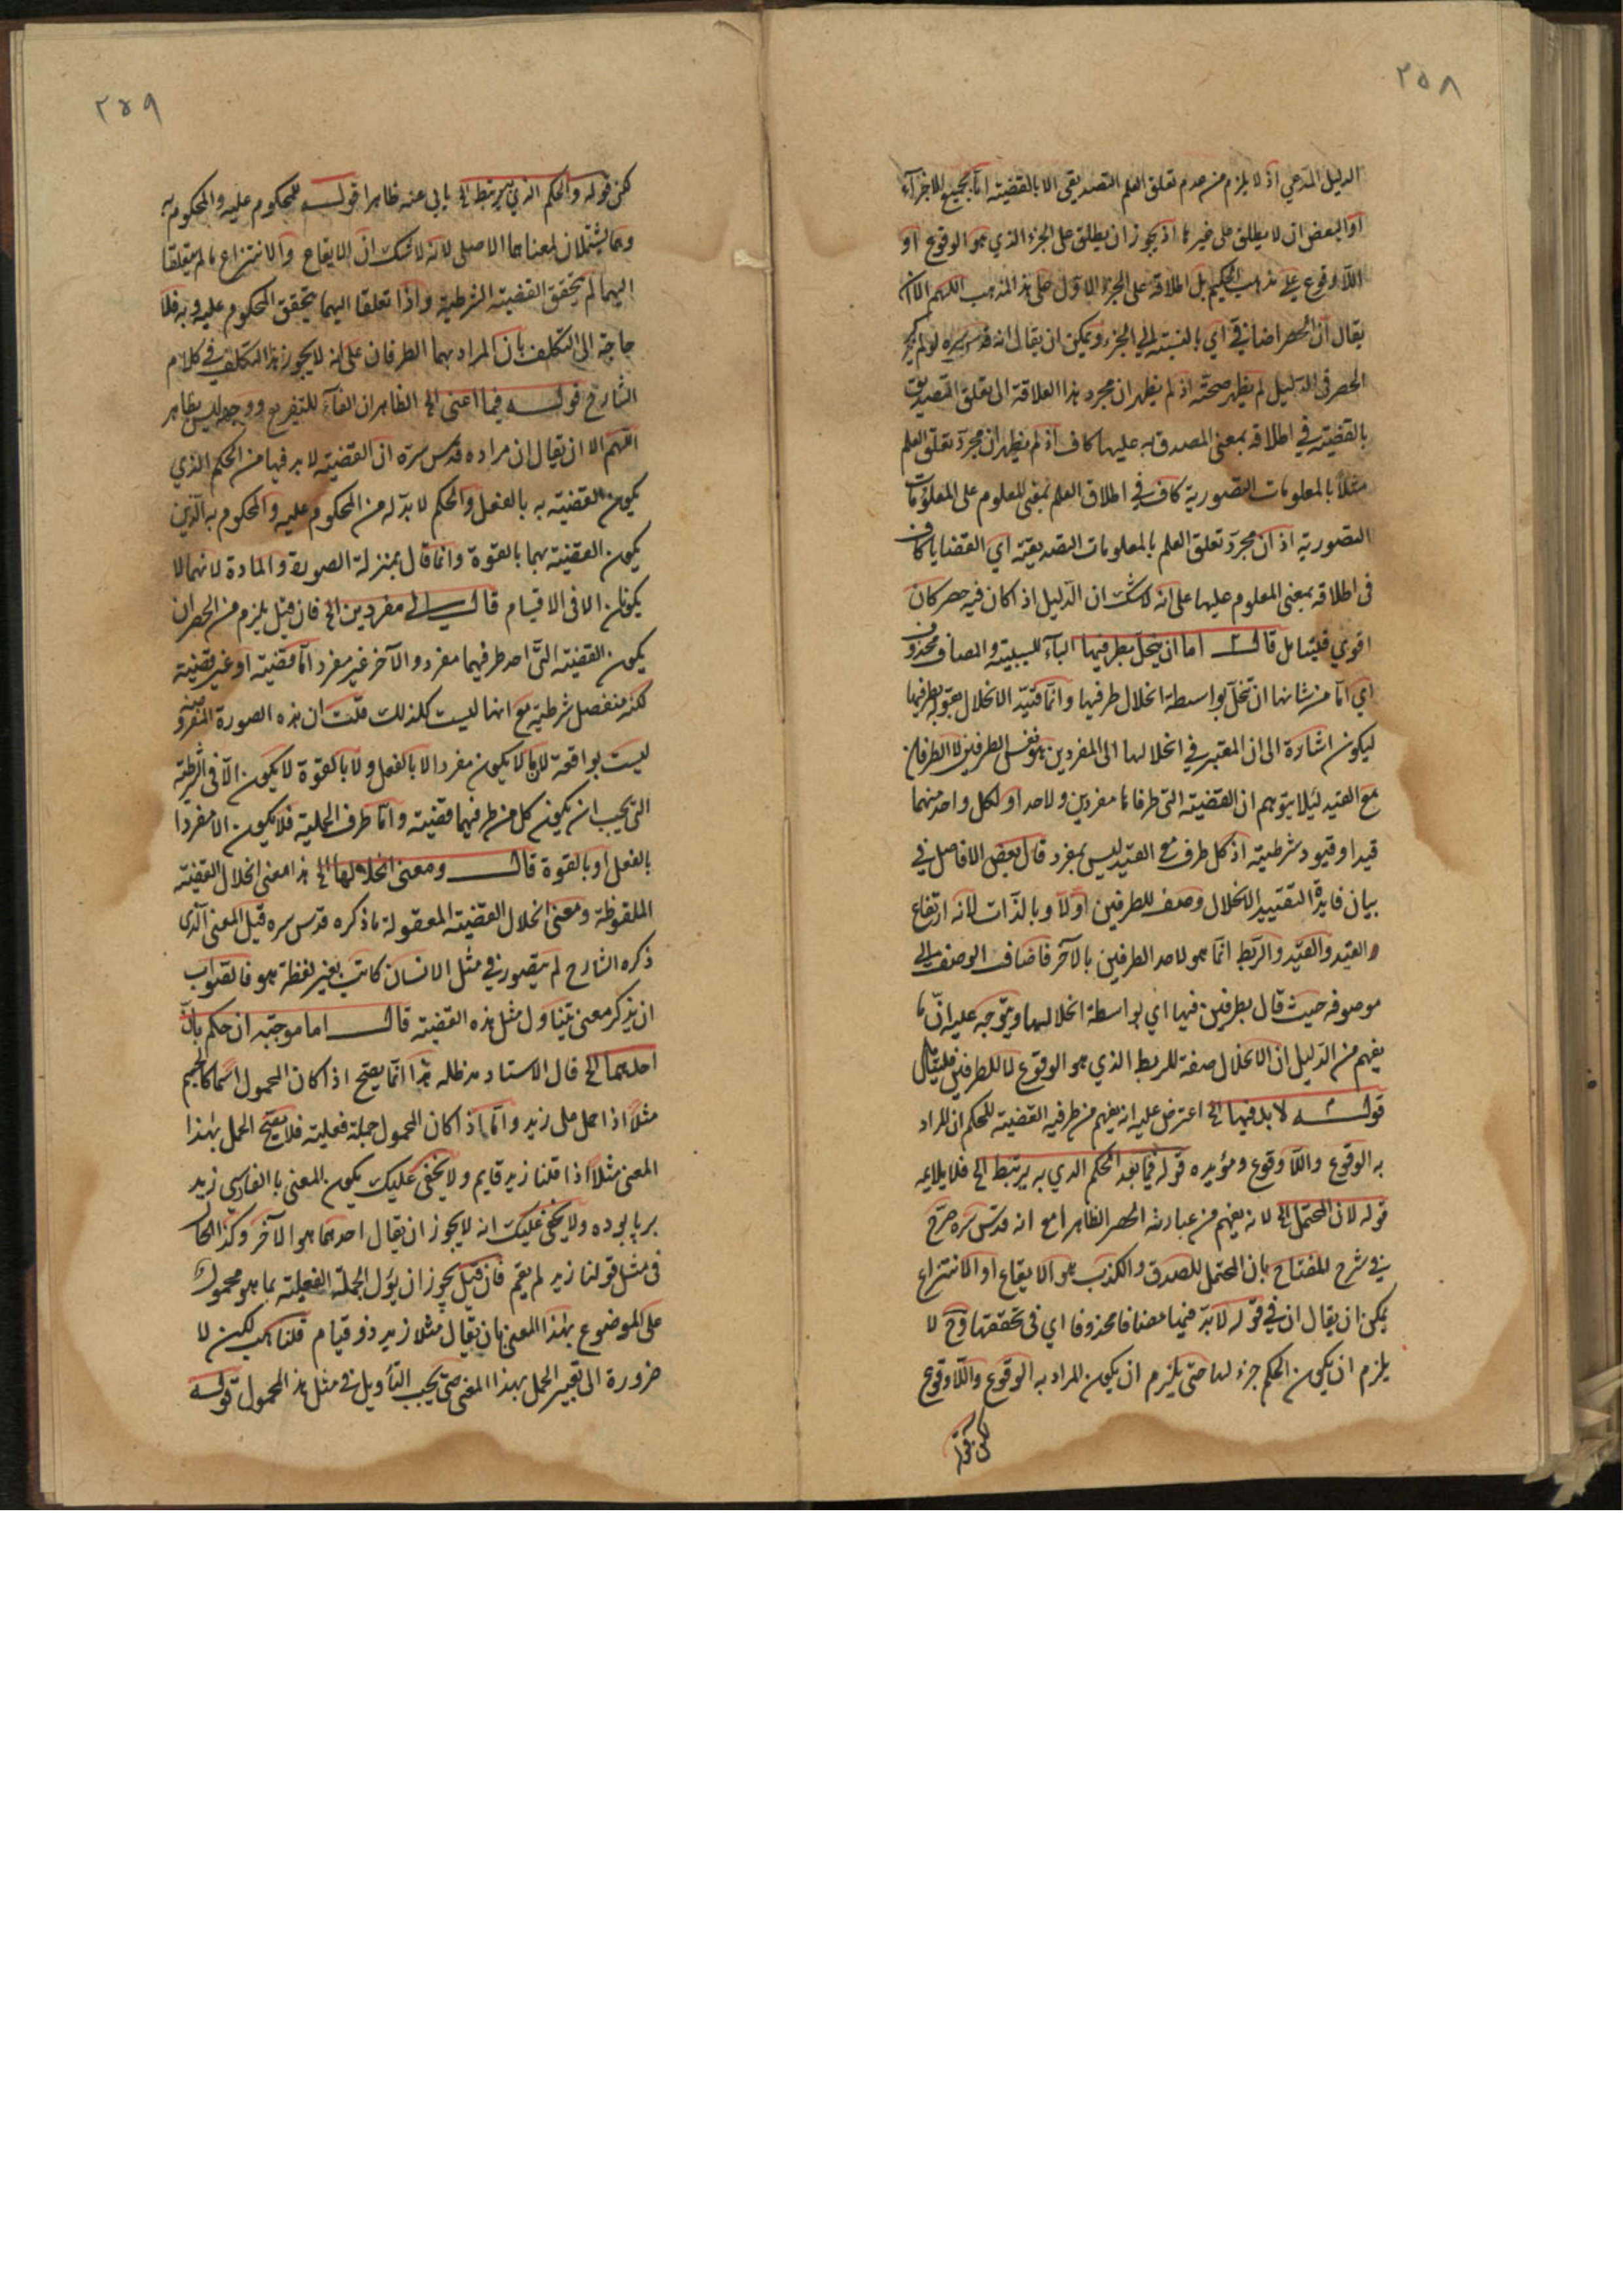 ٢٥٨
الدليل المدعي اذ لا يلزم من عدم تعلق العلم التصديقي الا بالقضية اما بجميع الاجزآء
او البعض ان لا يطلق على غيرها اذ يجوز ان يطلق على الجزء الذي هو الوقوع او
اللاوقوع على مذهب الحكيم بل اطلاقه على الجزء الاول على هذا المذهب اللهم الا ان
يقال ان الحصر اضافي اي بالنسبة الى الجزء ويمكن ان يقال انه قدس سره لو لم
الحصر في الدليل لم يظهر صحته اذ لم يظهر ان مجرد هذا العلاقة الى تعلق التصديق
بالقضية في اطلاقه بمعنى المصدق به عليها كاف اذ لم يظهر ان مجرد تعلق العلم
مثلاً بالمعلومات التصورية كاف في اطلاق العلم بمعنى المعلوم على المعلومات
التصورية اذ ان مجرد تعلق العلم بالمعلومات التصديقية اي القضايا كاف
فى اطلاقه بمعنى المعلوم عليها على انه لا شك ان الدليل اذ اكان فيه حصر كان
اقوي فليتأمل قال اما ان ينحل بطرفيها البآء للسببية والمضاف محذوف
اي اما من شانها ان تنحل بواسطة انحلال طرفيها وانما قيد الانحلال بقوله بطرفيها
ليكون اشارة الى ان المعتبر في انحلالها الى المفردين هو نفس الطرفين لا الطرفان
مع القيد لئلا يتوهم ان القضية التي طرفاها مفردين ولاحد او لكل واحد منهما
قيد او قيود شرطية اذ كل طرف مع القيد ليس بمفرد قال بعض الافاضل في
بيان فايدة التقييد الانحلال وصف للطرفين اولاً وبالذات لانه ارتفاع
القيد والقيد والربط انما هو لاحد الطرفين بالآخر فاضاف الوصف الى
موصوفه حيث قال بطرفين فيها اي بواسطة انحلالهما ويتوجه عليه ان ما
يفهم من الدليل ان الانحلال صفة للربط الذي هو الوقوع لا للطرفين فليتأمل
قوله لا بد فيها الخ اعترض عليه انه يفهم من طرفيه القضية للحكم ان المراد
به الوقوع واللاوقوع ومؤيده قوله فيما بعد الحكم الذي به يرتبط الخ فلا يلايمه
قوله لان المحتمل الخ لانه يفهم من عبارته الحصر الظاهر مع انه قدس سره صرح
في شرح المفتاح بان المحتمل للصدق والكذب هو الايقاع او الانتزاع
يمكن ان يقال ان في قوله لا بد فيها مضافا محذوفا اي في تحققها وح لا
يلزم ان يكون الحكم جزء لها حتى يلزم ان يكون المراد به الوقوع واللاوقوع
لكن قوله
٢٥٩
لكن قوله والحكم الذي به يرتبط الخ يابى عنه ظاهرا قوله المحكوم عليه والمحكوم به
وهما يشتملان لمعناهما الاصلى لانه لا شك ان الايقاع والانتزاع ما لم يتعلقا
اليهما لم يتحقق القضية الشرطية واذا تعلقا اليهما يتحقق المحكوم عليه وبه فلا
حاجة الى التكلف بان المراد بهما الطرفان على انه لا يجوز هذا التكلف في كلام
الشارح قوله فيما اعنى الخ الظاهر ان الفآء للتفريع ووجهه ليس بظاهر
اللهم الا ان يقال ان مراده قدس سره ان القضية لا بد فيها من الحكم الذي
يكون القضية به بالفعل والحكم لا بد له من المحكوم عليه والمحكوم به الذين
يكون القضية بهما بالقوة وانما قال بمنزلة الصورة والمادة لانهما لا
يكونان الا في الاقسام قال الى مفردين الخ فان قيل يلزم من الحصر ان
يكون القضية التى احد طرفيها مفرد والآخر غير مفرد اما قضية او غير قضية
منفصل شرطية مع انها ليست كذلك قلت ان هذه الصورة المفروضة
ليست بواقعة لان ما لا يكون مفردا لا بالفعل ولا بالقوة لا يكون الا في الشرطية
التي يجب ان يكون كل من طرفيها قضية واما طرف الحملية فلا يكون الا مفردا
بالفعل او بالقوة قال ومعنى انحلالها الخ هذا معنى انحلال القضية
الملفوظة ومعنى انحلال القضية المعقولة ما ذكره قدس سره قيل المعنى الذى
ذكره الشارح لم يتصور في مثل الانسان كاتب بغير لفظة هو فالصواب
ان يذكر معنى يتناول مثل هذه القضية قال اما موجبة ان حكم بان
احدهما الخ قال الاستاد مد ظله هذا انما يصح اذ اكان المحمول اسما كالجسم
مثلاً اذا حمل على زيد واما اذ اكان المحمول جملة فعلية فلا يصح الحمل بهذا
المعنى مثلاً اذا قلنا زيد قايم ولا يخفى عليك يكون المعنى بالفارسي زيد
برپا بوده ولا يخفى عليك انه لا يجوز ان يقال احدهما هو الآخر وكذا الحال
فى مثل قولنا زيد لم يقم فان قيل يجوز ان يؤل الجملة الفعلية بما هو محمول
على الموضوع بهذا المعنى بان يقال مثلا زيد ذو قيام قلنا هب لكن لا
ضرورة الى تعبير الحمل بهذا المعنى حتى يجب التأويل في مثل هذا المحمول قوله